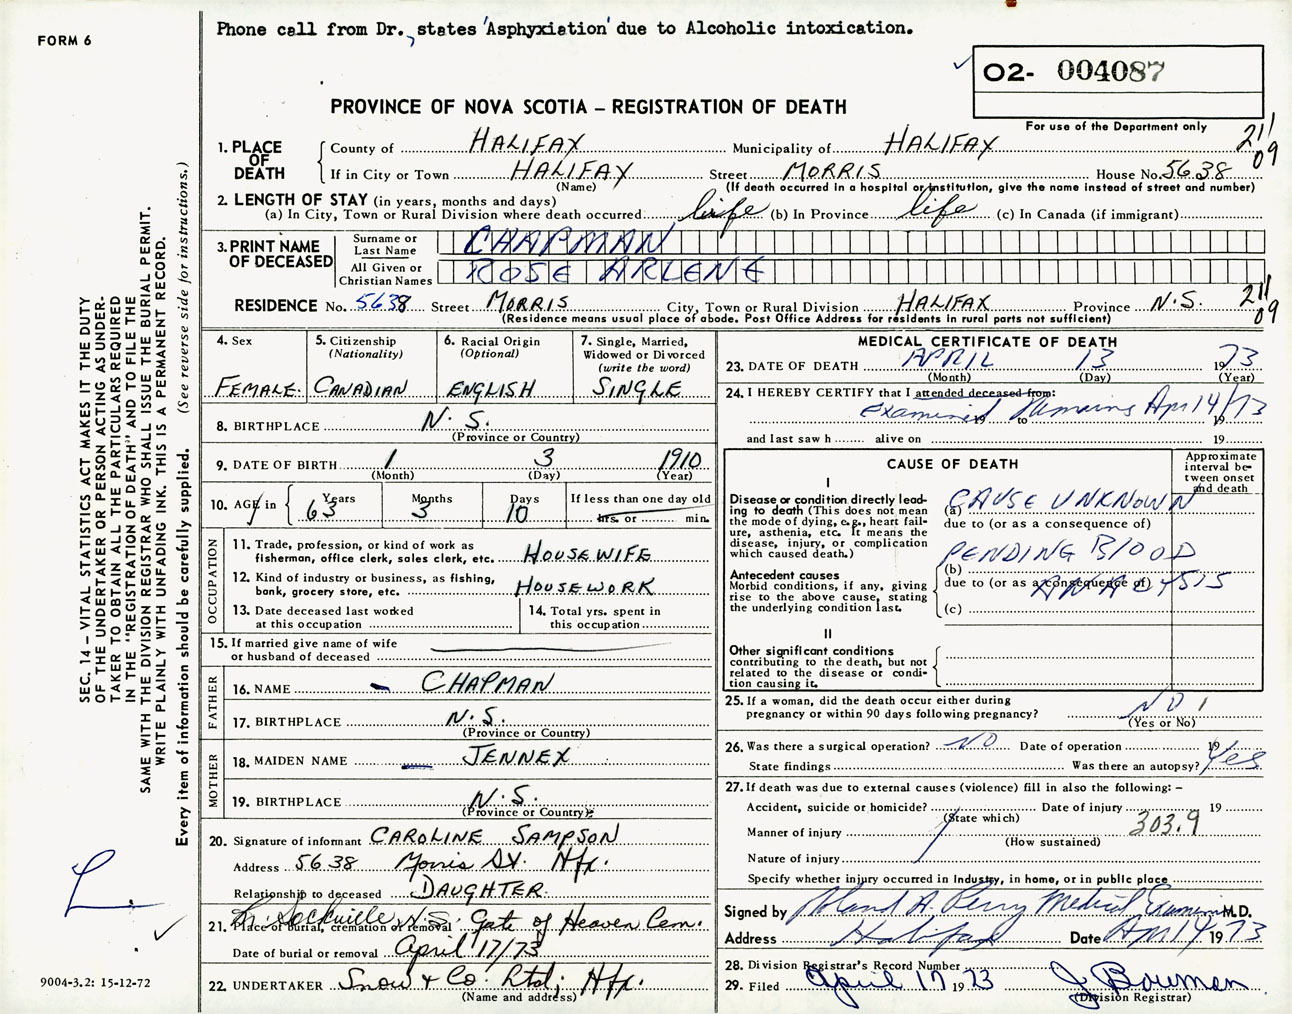 Phone call from Dr., states 'Asphyxiation' due to Alcoholic intoxication.
FORM 6
02- 004087
PROVINCE OF NOVA SCOTIA – REGISTRATION OF DEATH
For use of the Department only
211
09
1. PLACE OF DEATH
County of HALIFAX Municipality of HALIFAX
If in City or Town HALIFAX Street MORRIS House No. 5638
(Name) (If death occurred in a hospital or institution, give the name instead of street and number)
2. LENGTH OF STAY (in years, months and days)
(a) In City, Town or Rural Division where death occurred life (b) In Province life (c) In Canada (if immigrant)
3. PRINT NAME OF DECEASED
Surname or Last Name CHAPMAN
All Given or Christian Names ROSE ARLENE
RESIDENCE No. 5638 Street MORRIS City, Town or Rural Division HALIFAX Province N.S.
211
09
(Residence means usual place of abode. Post Office Address for residents in rural parts not sufficient)
4. Sex
FEMALE.
5. Citizenship
(Nationality)
CANADIAN
6. Racial Origin
(Optional)
ENGLISH
7. Single, Married,
Widowed or Divorced
(write the word)
SINGLE
8. BIRTHPLACE N.S.
(Province or Country)
9. DATE OF BIRTH 1 3 1910
(Month) (Day) (Year)
10. AGE in Years Months Days If less than one day old
63 3 10 hrs. or min.
OCCUPATION
11. Trade, profession, or kind of work as
fisherman, office clerk, sales clerk, etc. HOUSEWIFE
12. Kind of industry or business, as fishing,
bank, grocery store, etc. HOUSEWORK
13. Date deceased last worked
at this occupation
14. Total yrs. spent in
this occupation
15. If married give name of wife
or husband of deceased
FATHER
16. NAME CHAPMAN
17. BIRTHPLACE N.S.
(Province or Country)
MOTHER
18. MAIDEN NAME JENNEX
19. BIRTHPLACE N.S.
(Province or Country)
20. Signature of informant CAROLINE SAMPSON
Address 5638 Morris St. Hfx.
Relationship to deceased DAUGHTER.
21. Place of burial, cremation or removal Lr. Sackville N.S. Gate of Heaven Cem.
Date of burial or removal April 17/73
22. UNDERTAKER Snow & Co. Ltd; Hfx.
(Name and address)
MEDICAL CERTIFICATE OF DEATH
23. DATE OF DEATH APRIL 13 1973
(Month) (Day) (Year)
24. I HEREBY CERTIFY that I attended deceased from:
Examined Remains Apr 14/73
19 to 19
and last saw h alive on 19
CAUSE OF DEATH
Approximate
interval be-
tween onset
and death
I
Disease or condition directly lead-
ing to death (This does not mean
the mode of dying, e.g., heart fail-
ure, asthenia, etc. It means the
disease, injury, or complication
which caused death.)
(a) CAUSE UNKNOWN
due to (or as a consequence of)
(b) PENDING BLOOD
Antecedent causes
Morbid conditions, if any, giving
rise to the above cause, stating
the underlying condition last.
due to (or as a consequence of)
ANALYSIS
(c)
II
Other significant conditions
contributing to the death, but not
related to the disease or condi-
tion causing it.
25. If a woman, did the death occur either during
pregnancy or within 90 days following pregnancy? NO
(Yes or No)
26. Was there a surgical operation? NO Date of operation 19
State findings Was there an autopsy? Yes
27. If death was due to external causes (violence) fill in also the following: –
Accident, suicide or homicide? Date of injury 19
(State which)
303.9
Manner of injury
(How sustained)
Nature of injury
Specify whether injury occurred in Industry, in home, or in public place
Signed by Roland A. Perry Medical Examiner M.D.
Address Halifax Date Apr 14 1973
28. Division Registrar's Record Number
29. Filed April 17 1973 J Bowman
(Division Registrar)
SEC. 14 – VITAL STATISTICS ACT MAKES IT THE DUTY
OF THE UNDERTAKER OR PERSON ACTING AS UNDER-
TAKER TO OBTAIN ALL THE PARTICULARS REQUIRED
IN THE "REGISTRATION OF DEATH" AND TO FILE THE
SAME WITH THE DIVISION REGISTRAR WHO SHALL ISSUE THE BURIAL PERMIT.
WRITE PLAINLY WITH UNFADING INK. THIS IS A PERMANENT RECORD.
Every item of information should be carefully supplied. (See reverse side for instructions.)
L
9004-3.2: 15-12-72